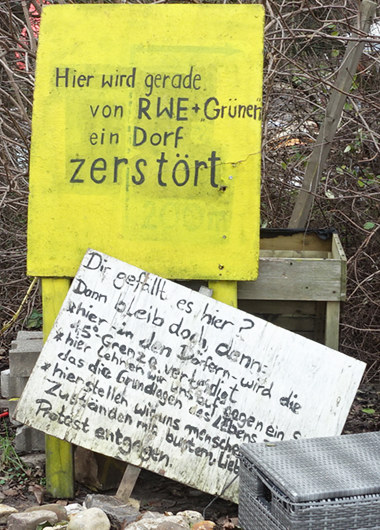 Hier wird gerade
von RWE+Grünen
ein Dorf
zerstört
Dir gefällt es hier?
Dann bleib doch, denn:
*hier in den Dörfern wird die
1,5°-Grenze verteidigt
*hier lehnen wir uns auf gegen ein S
das die Grundlagen des Lebens
*hier stellen wir uns mensche
Zuständen mit buntem, lieb
Protest entgegen.